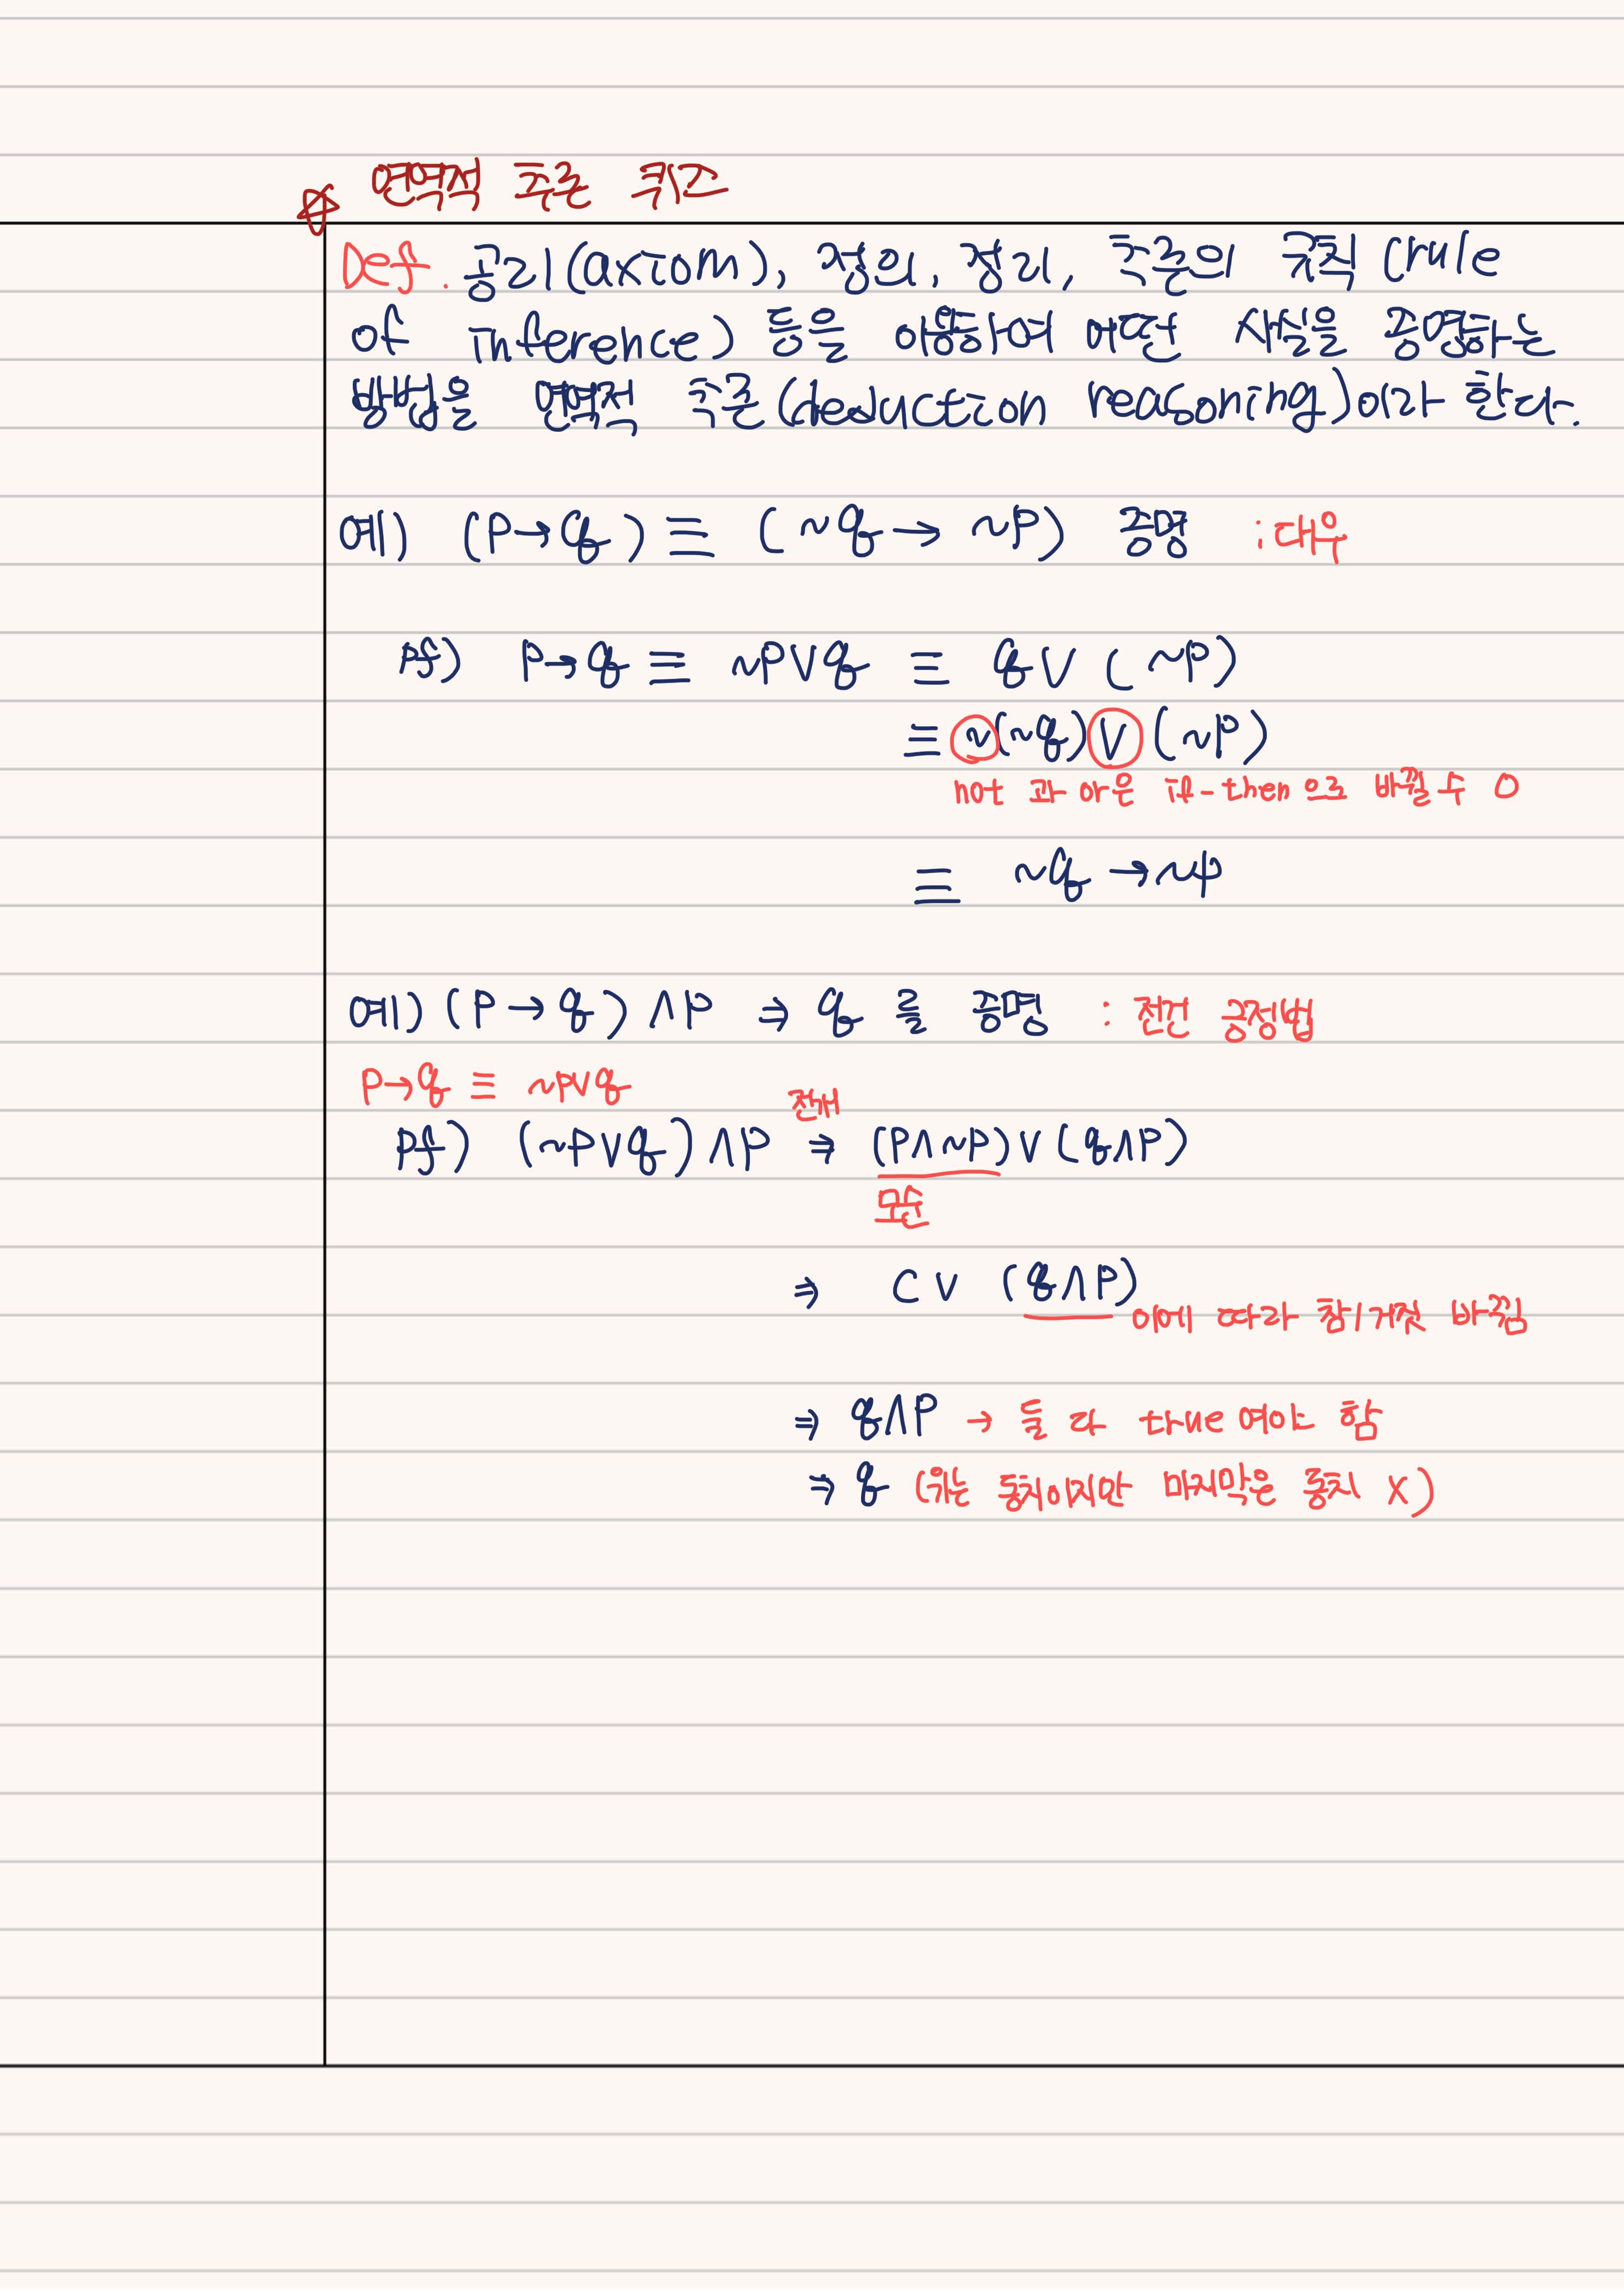 연역적 추론 퀴즈
Def. 공리(axiom), 정의, 정리, 추론의 규칙 (rule
of inference) 등을 이용하여 어떤 사실을 증명하는
방법을 연역적 추론(deduction reasoning)이라 한다.
예) (P→q) ≡ (~q → ~P) 증명 : 대우
Pf) P→q ≡ ~P∨q ≡ q∨(~P)
≡ ~(~q)∨(~P)
not 과 or은 if-then 으로 바꿀수 O
≡ ~q → ~p
예) (P→q)∧P ⇒ q 를 증명 : 전건 긍정법
P→q ≡ ~P∨q
전개
Pf) (~P∨q)∧P ⇒ (P∧~P)∨(q∧P)
모순
⇒ C∨(q∧P)
이에 따라 참/거짓 바뀜
⇒ q∧P → 둘 다 true 여야 함
⇒ q (위는 동치이지만 마지막은 동치 X)